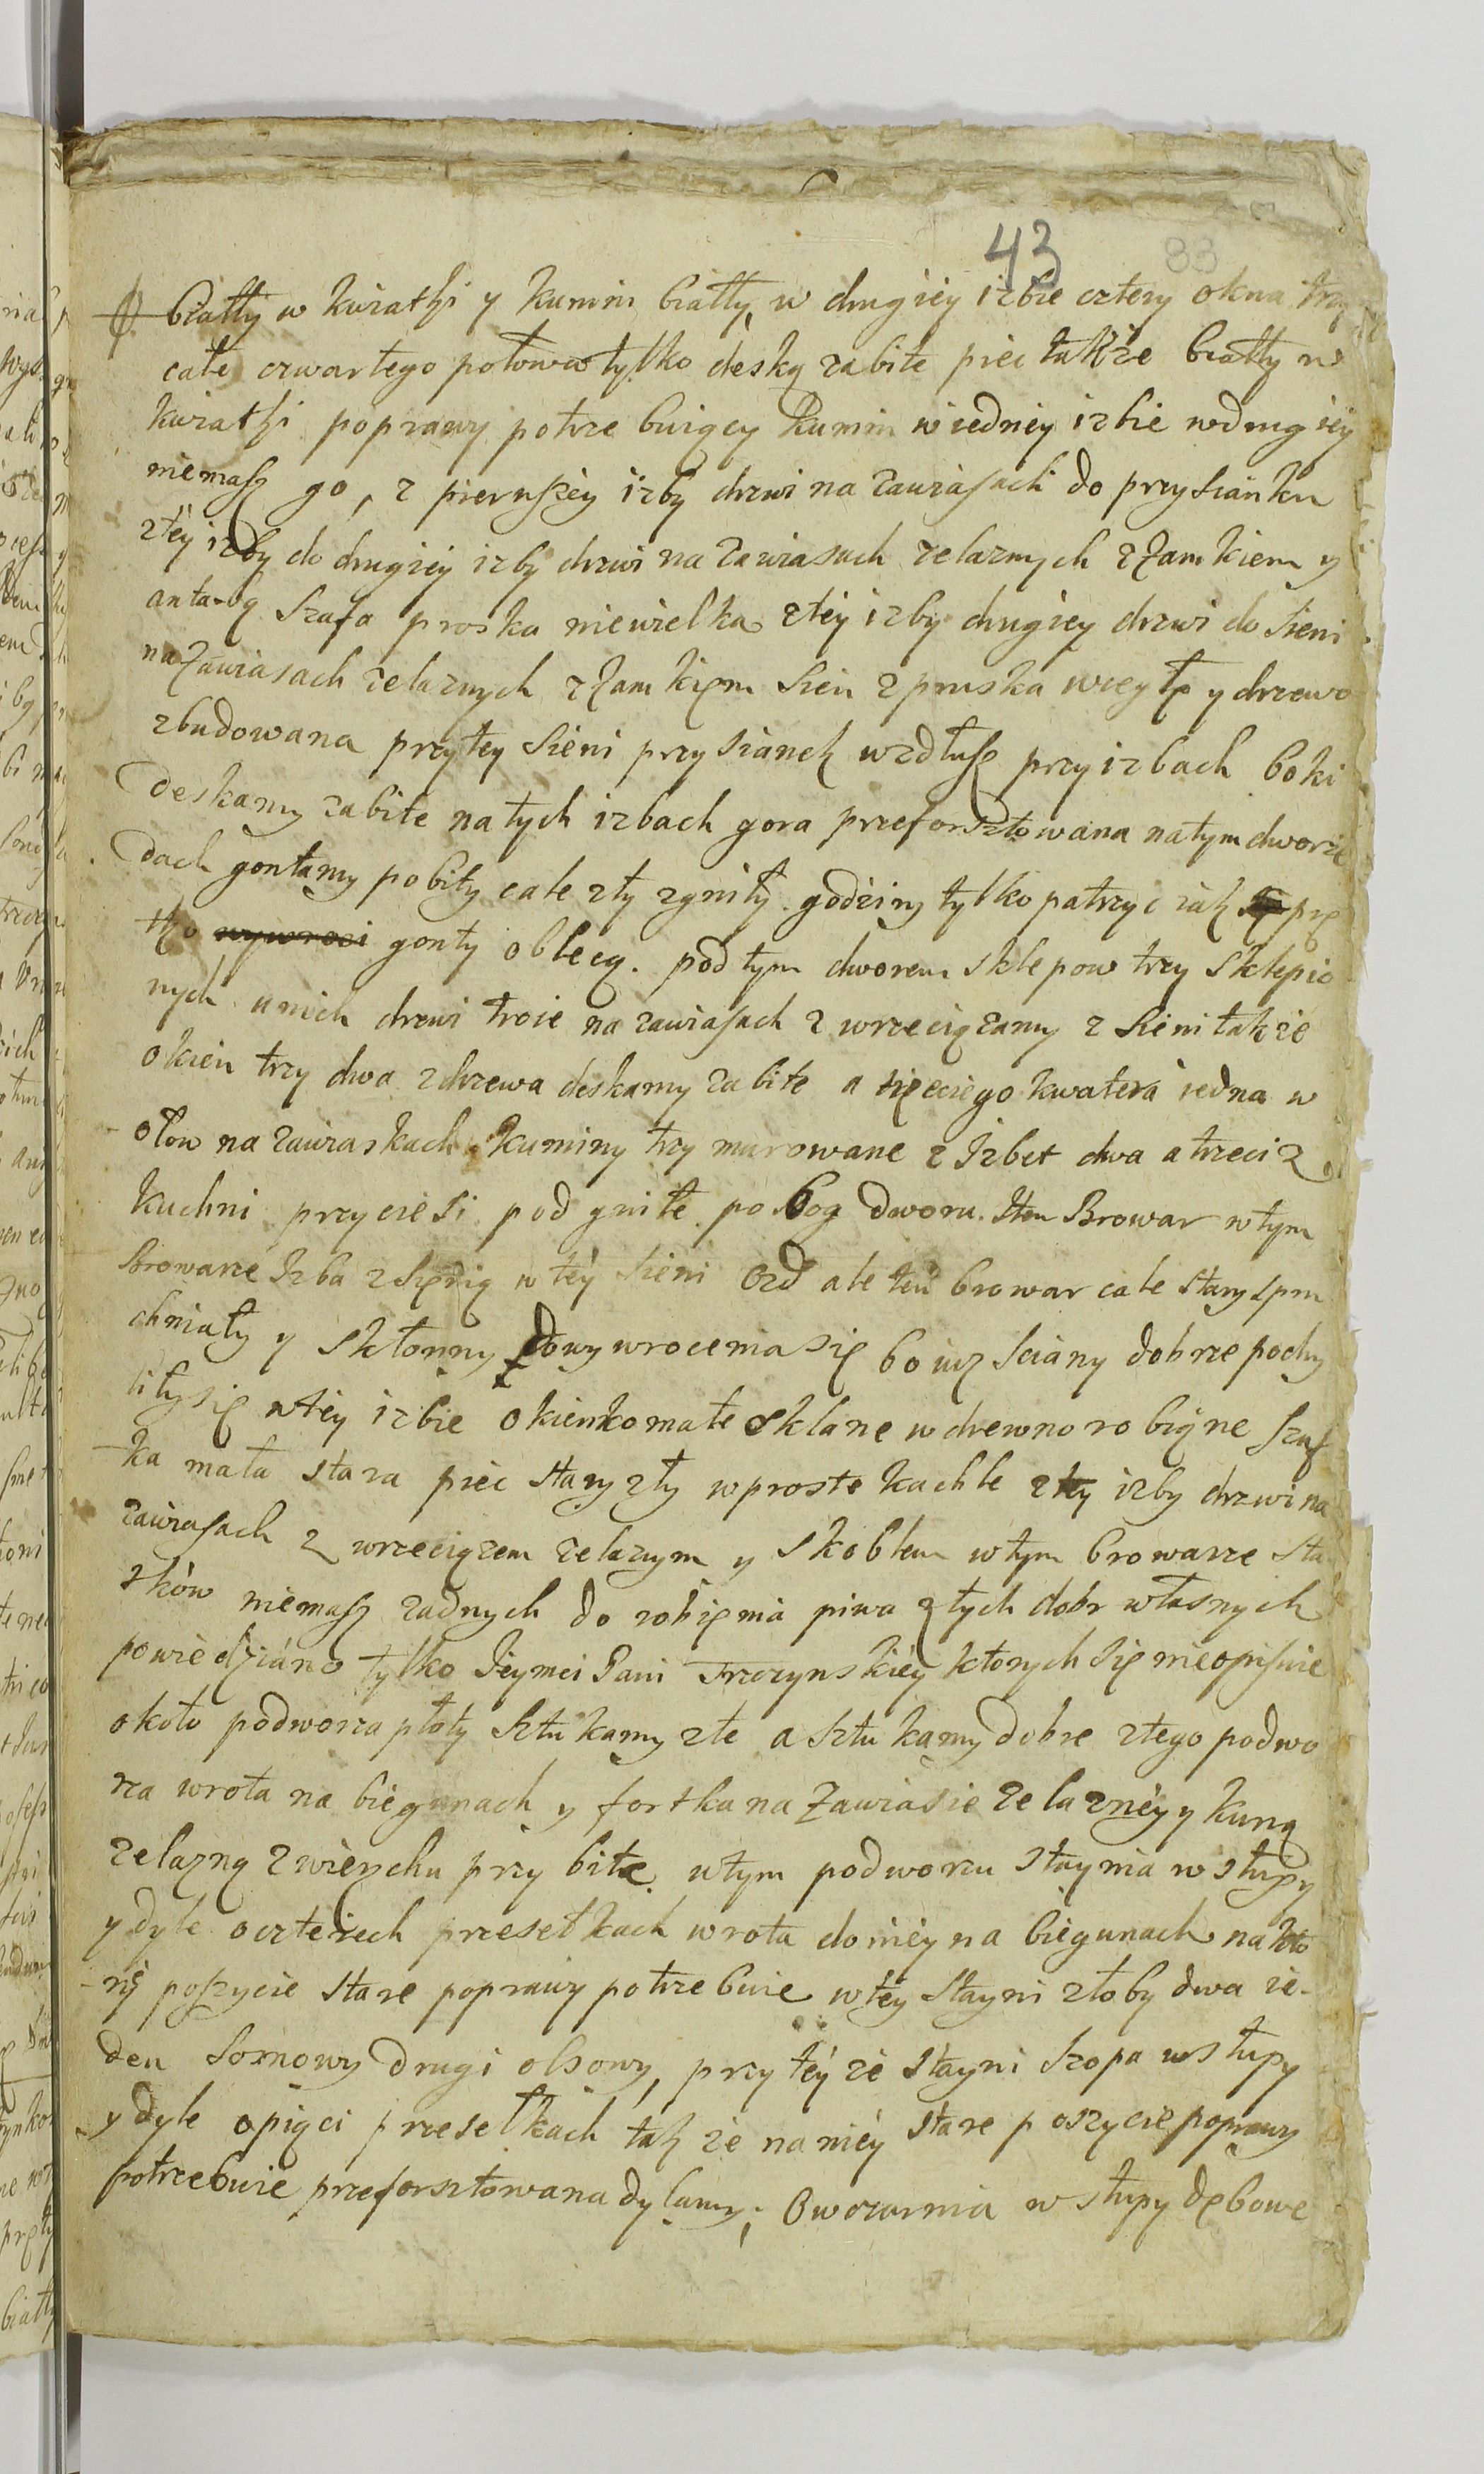 43 83
biały w kwiatki y kumin biały, w drugiey izbie cztery okna trzy
całe czwartego połowa tylko deską zabite piec także biały w
kwiatki poprawy potrzebuiący kumin w iedney izbie w drugiey
niemasz go, z pierwszey izby drzwi na zawiasach do przysianku
z tey izby do drugiey izby drzwi na zawiasach zelaznych z zamkiem y
antabą szafa proska niewielka z tey izby drugiey drzwi do sieni
na zawiasach zelaznych z zamkiem sien z pruska w cegłę y drzewo
zbudowana przy tey sieni przysianek wzdłusz przy izbach boki
deskamy zabite na tych izbach gora przeforsztowana na tym dworze
dach gontamy pobity cale zły zgniły godziny tylko patrzyc iak prę
tko wywroci gonty oblecą. pod tym dworem sklepow trzy sklepio
nych u nich drzwi troie na zawiasach z wrzeciązamy z sieni także
okien trzy dwa z drzewa deskamy zabite a trzeciego kwatera iedna w
ołow na zawiaskach kuminy trzy murowane z Izbet dwa a trzeci z
kuchni przyciesi pod gniłe pobog dworu. Item Browar w tym
Browarze Izba z sienią w tey sieni Ozd ale ten browar cale stary spru
chniały y skłonny do wywrocenia się bo iusz sciany dobrze pochy
liły się w tey izbie okienko małe sklane w drewno robione szaf
ka mała stara piec stary zły w proste kachle z tey izby drzwi na
zawiasach z wrzeciązem zelaznym y skoblem w tym browarze sta
tkow niemasz zadnych do robienia piwa z tych dobr własnych
powiedziano tylko Jeymci Pani Trzczynskiey ktorych się nieopisuie
około podworza płoty sztukamy złe a sztukamy dobre z tego podwo
rza wrota na biegunach y fortka na zawiasie zelazney y kuną
zelazną z wierzchu przybite w tym podworzu staynia w słupy
y dyle o czterech przesełkach wrota do niey na biegunach na kto
ry poszycie stare poprawy potrzebuie w tey stayni złoby dwa ie-
den sosnowy drugi olsowy, przy tey ze stayni szopa w słupy
y dyle o piąci przesełkach tak ze na niey stare poszycie poprawy
potrzebuie przeforsztowana dylamy; Owczarnia w słupy dębowe